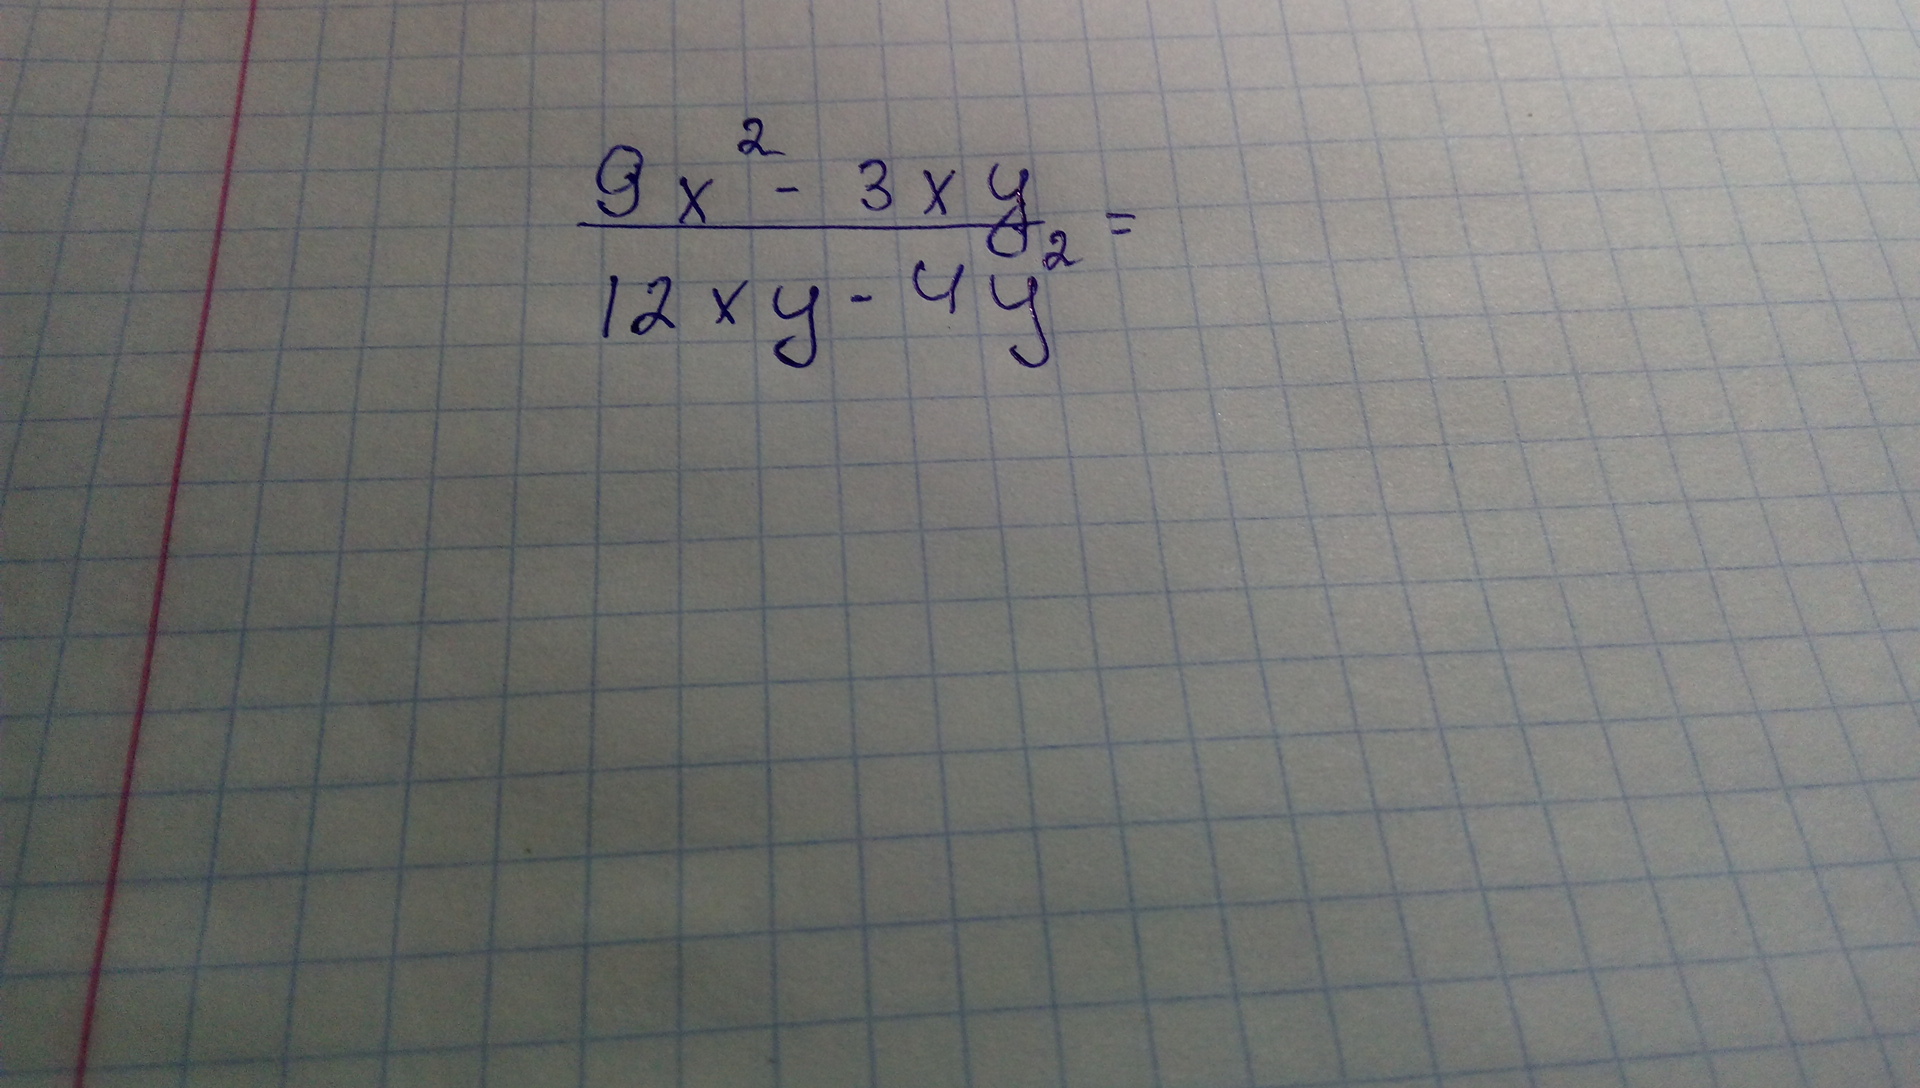 9x² - 3xy =
12xy - 4y²